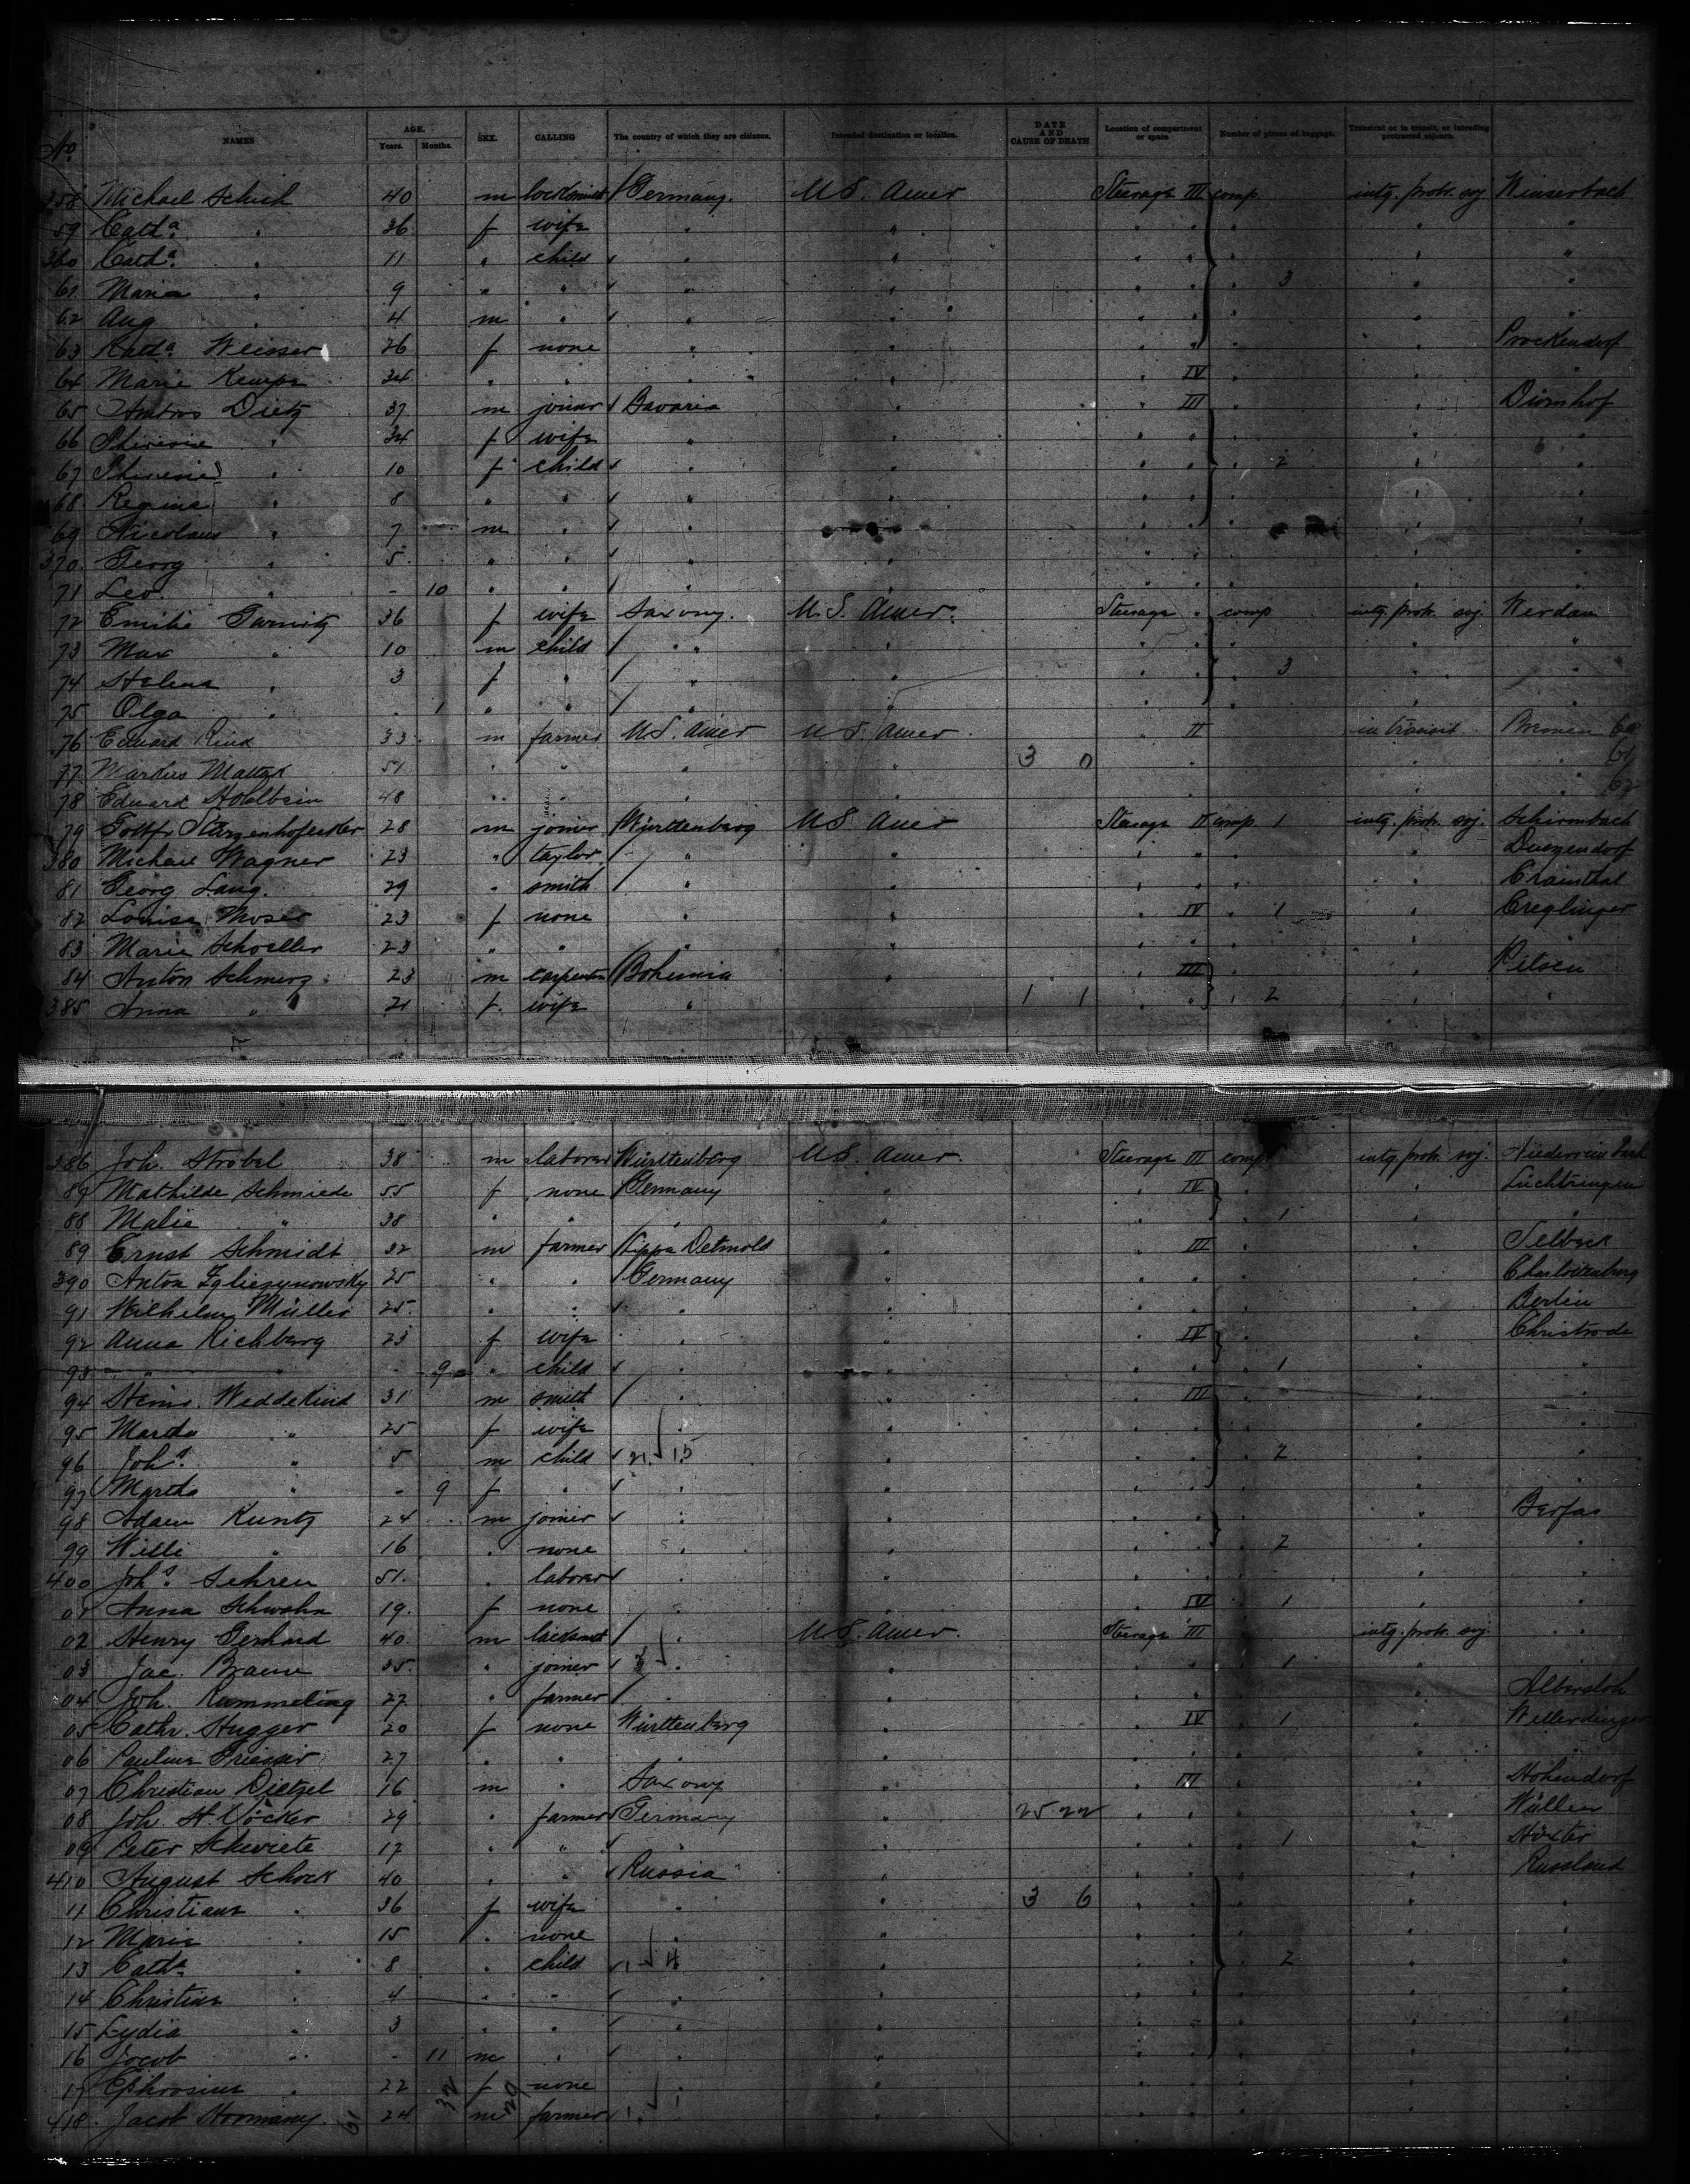 No NAMES AGE. Years. Months. SEX. CALLING The country of which they are citizens. Intended destination or location. DATE AND CAUSE OF DEATH Location of compartment or space Number of pieces of baggage. Transient or in transit, or intending protracted sojourn.
358 Michael Schuh 40 m locksmith Germany. U.S. Amer Steerage III comp. intg. protr. soj. Winserbach
59 Cath.a " 36 f wife " "
360 Cath.a " 11 " child " "
61 Maria " 9 " " " " 3
62 Aug " 4 m " " "
63 Kath.a Weisser 26 f none " " Prockendorf
64 Marie Kempe 34 " " " " IV
65 Ambros Dietz 37 m joiner Bavaria " III Dürnhof
66 Theresie " 34 f wife " "
67 Theresie " 10 f child " " 2
68 Regina " 8 " " " "
69 Nicolaus " 7 m " " "
370 Georg " 5 " " " "
71 Leo " - 10 " " " "
72 Emilie Garnitz 36 f wife Saxony. U.S. Amer. Steerage " comp intg. protr. soj. Werdau
73 Max " 10 m child " "
74 Helena " 3 f " " " 3
75 Olga " . 1 " " " "
76 Eduard Rink 33 m farmer U.S. Amer U.S. Amer II in transit Bremen 60
77 Markus Mattek 51 " " " " 3 0 61
78 Eduard Hohlbein 48 " " " " 62
79 28 m joiner Württenberg U.S. Amer Steerage II comp 1 intg. protr. soj. Schirmbach
380 Michael Wagner 23 " taylor " "
81 Georg Lang. 29 " smith " " Crainthal
82 Louise Moser 23 f none " " IV 1 Creglingen
83 Marie Schoeller 23 " " " "
84 Anton Schmerz 23 m carpenter Bohemia " III Pilsen
385 Anna " 21 f. wife " 1 1 2
386 Joh. Strobel 38 m laborer Württenberg U.S. Amer. Steerage III comp. intg. protr. soj.
89 Mathilde Schmiede 55 f none Germany " IV Lüchtringen
88 Malie " 38 " " " " 1
89 Ernst Schmidt 32 m farmer Lippe Detmold " III
390 Anton 25 " " Germany " Charlottenburg
91 Wilhelm Müller 25 " " " " Berlin
92 Anna Richberg 23 f wife " " IV Christrode
93 " " - 9 " child " " 1
94 Heinr. Weddekind 31 m smith " " III
95 Martha " 25 f wife " "
96 Joh.s " 5 m child 21 15 " 2
97 Martha " - 9 f " " "
98 Adam Kuntz 24 m joiner " " Berfas
99 Willi " 16 " none " " 2
400 Joh.s Sehren 51. " laborer " "
01 Anna Schwahn 19. f none " " IV 1
02 Henry Gerhard 40. m locksmit " U.S. Amer. Steerage III intg. protr. soj.
03 Jac. Braun 35. " joiner " " 1
04 Joh. Rummeling 27 " farmer " " Albersloh
05 Cathr. Hugger 20 f none Württenberg " IV 1
06 Pauline 27 " " " "
07 Christian Dietzel 16 m " Saxony " III Hohendorf
08 Joh. H. Vöcker 29 " farmer Germany " 25 22 Wüllen
09 Peter Schwiete 17 " " " " 1 Höxter
410 August Schock 40 " " Russia " Russland
11 Christiane " 36 f wife " " 3 6
12 Marie " 15 " none " "
13 Cath.a " 8 " child 1 4 " 2
14 Christine " 4 " " " "
15 Lydia " 3 " " " "
16 Jacob " - 11 m " " "
17 Ephrosine " 22 f none " "
418. Jacob 24 m farmer " "
61 32 29